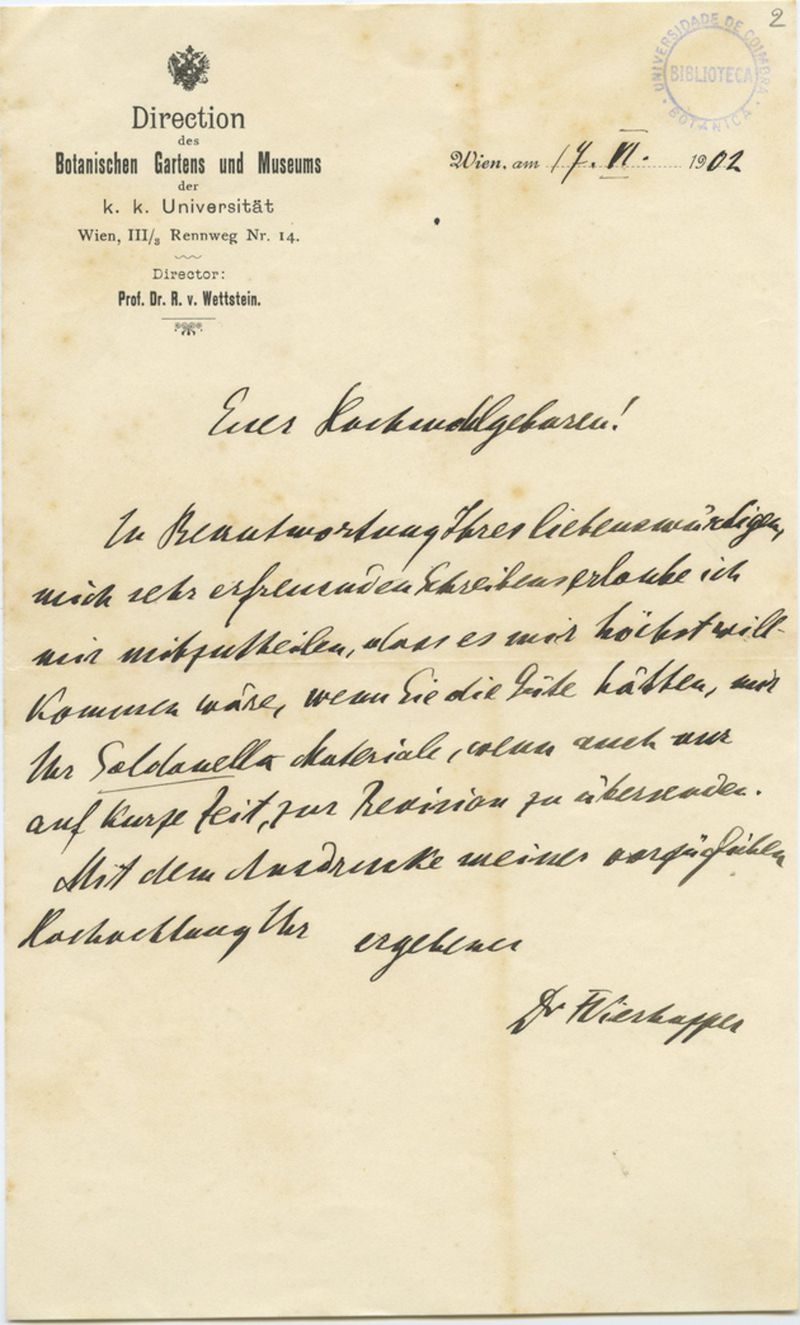 2
UNIVERSIDADE DE COIMBRA
BIBLIOTECA
BOTANICA
Direction
des
Botanischen Gartens und Museums
der
k. k. Universität
Wien, III/3 Rennweg Nr. 14.
Director:
Prof. Dr. R. v. Wettstein.
Wien, am 17. VI. 1902
Euer Hochwohlgeboren!
In Beantwortung Ihres liebenswürdigen,
mich sehr erfreuenden Schreibens erlaube ich
mir mitzutheilen, dass es mir höchst will-
kommen wäre, wenn Sie die Güte hätten, mir
Ihr Soldanella Materiale, wenn auch nur
auf kurze Zeit, zur Revision zu übersenden.
Mit dem Ausdrucke meiner vorzüglichen
Hochachtung Ihr ergebener
Dr FVierhapper